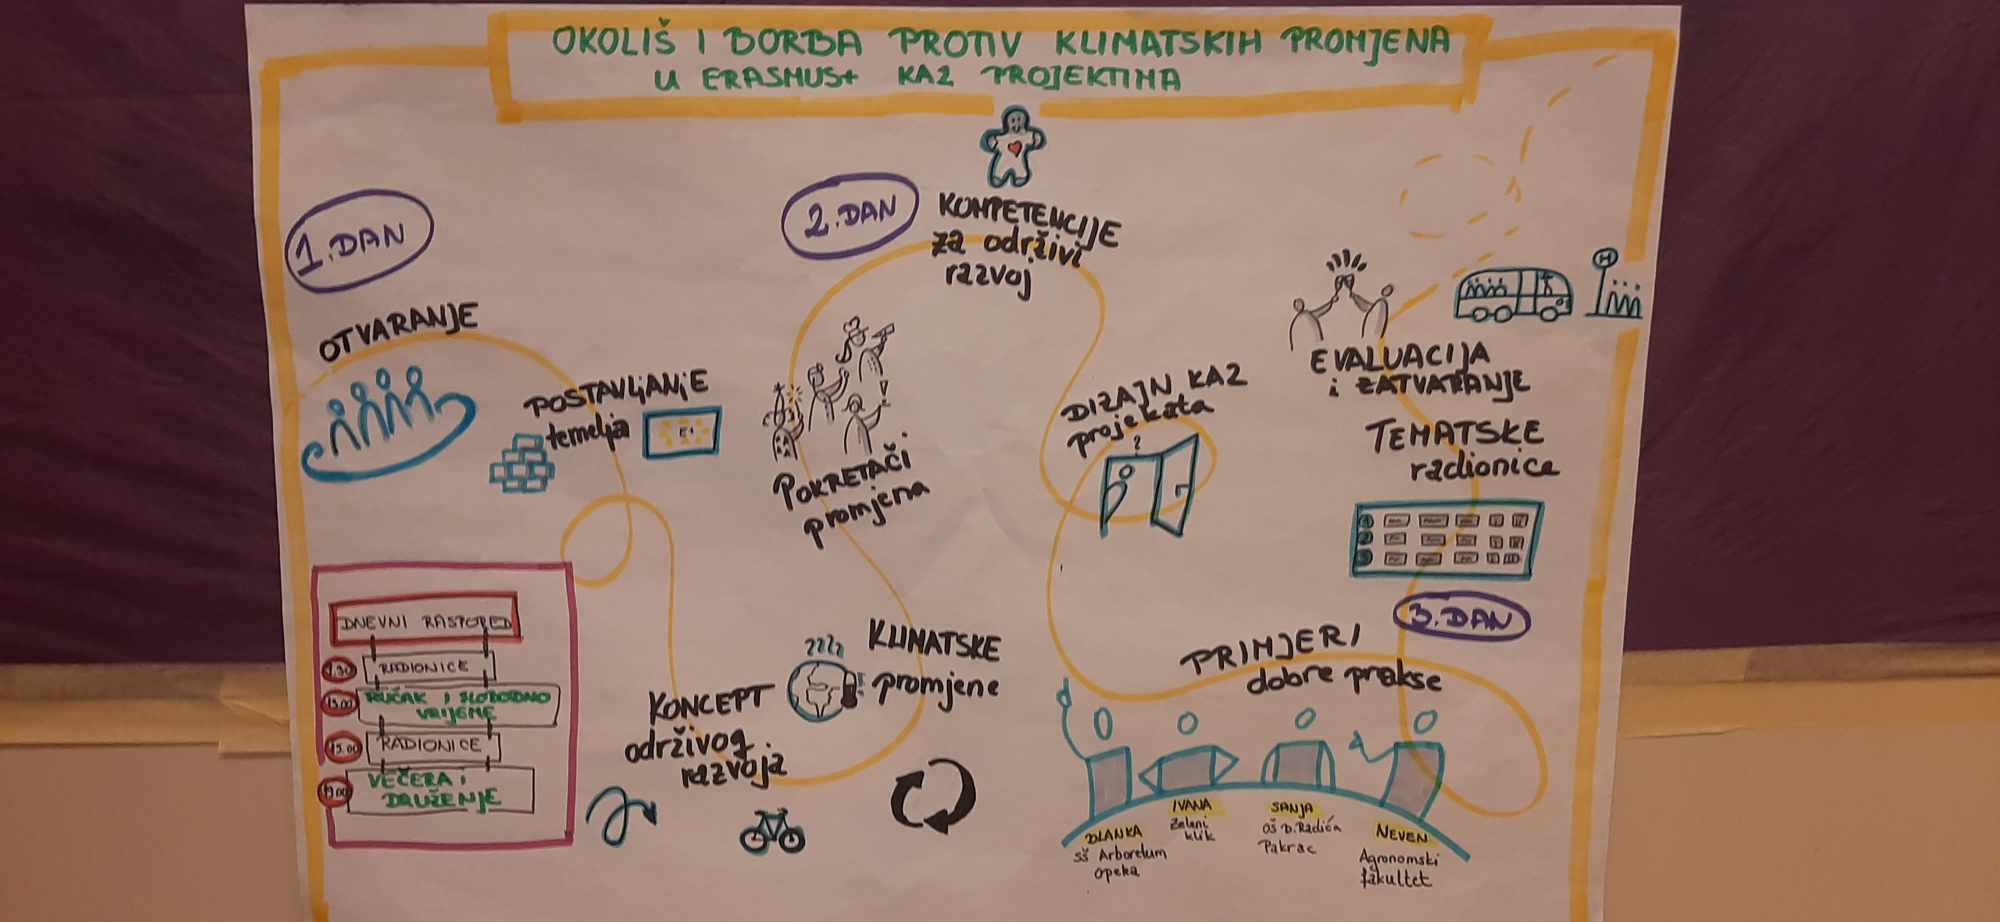 OKOLIŠ I BORBA PROTIV KLIMATSKIH PROMJENA
U ERASMUS+ KA2 PROJEKTIMA
1. DAN
OTVARANJE
POSTAVLJANJE
temelja
DNEVNI RASPORED
9.30 RADIONICE
13.00 RUČAK I SLOBODNO
VRIJEME
15.00 RADIONICE
19.00 VEČERA i
DRUŽENJE
KONCEPT
održivog
razvoja
KLIMATSKE
promjene
POKRETAČI
promjena
2. DAN
KOMPETENCIJE
za održivi
razvoj
DIZAJN KA2
projekata
?
PRIMJERI
dobre prakse
BLANKA
SŠ Arboretum
Opeka
IVANA
Zeleni
klik
SANJA
OŠ B. Radića
Pakrac
NEVEN
Agronomski
fakultet
3. DAN
TEMATSKE
radionice
1
2
3
EVALUACIJA
i ZATVARANJE
H